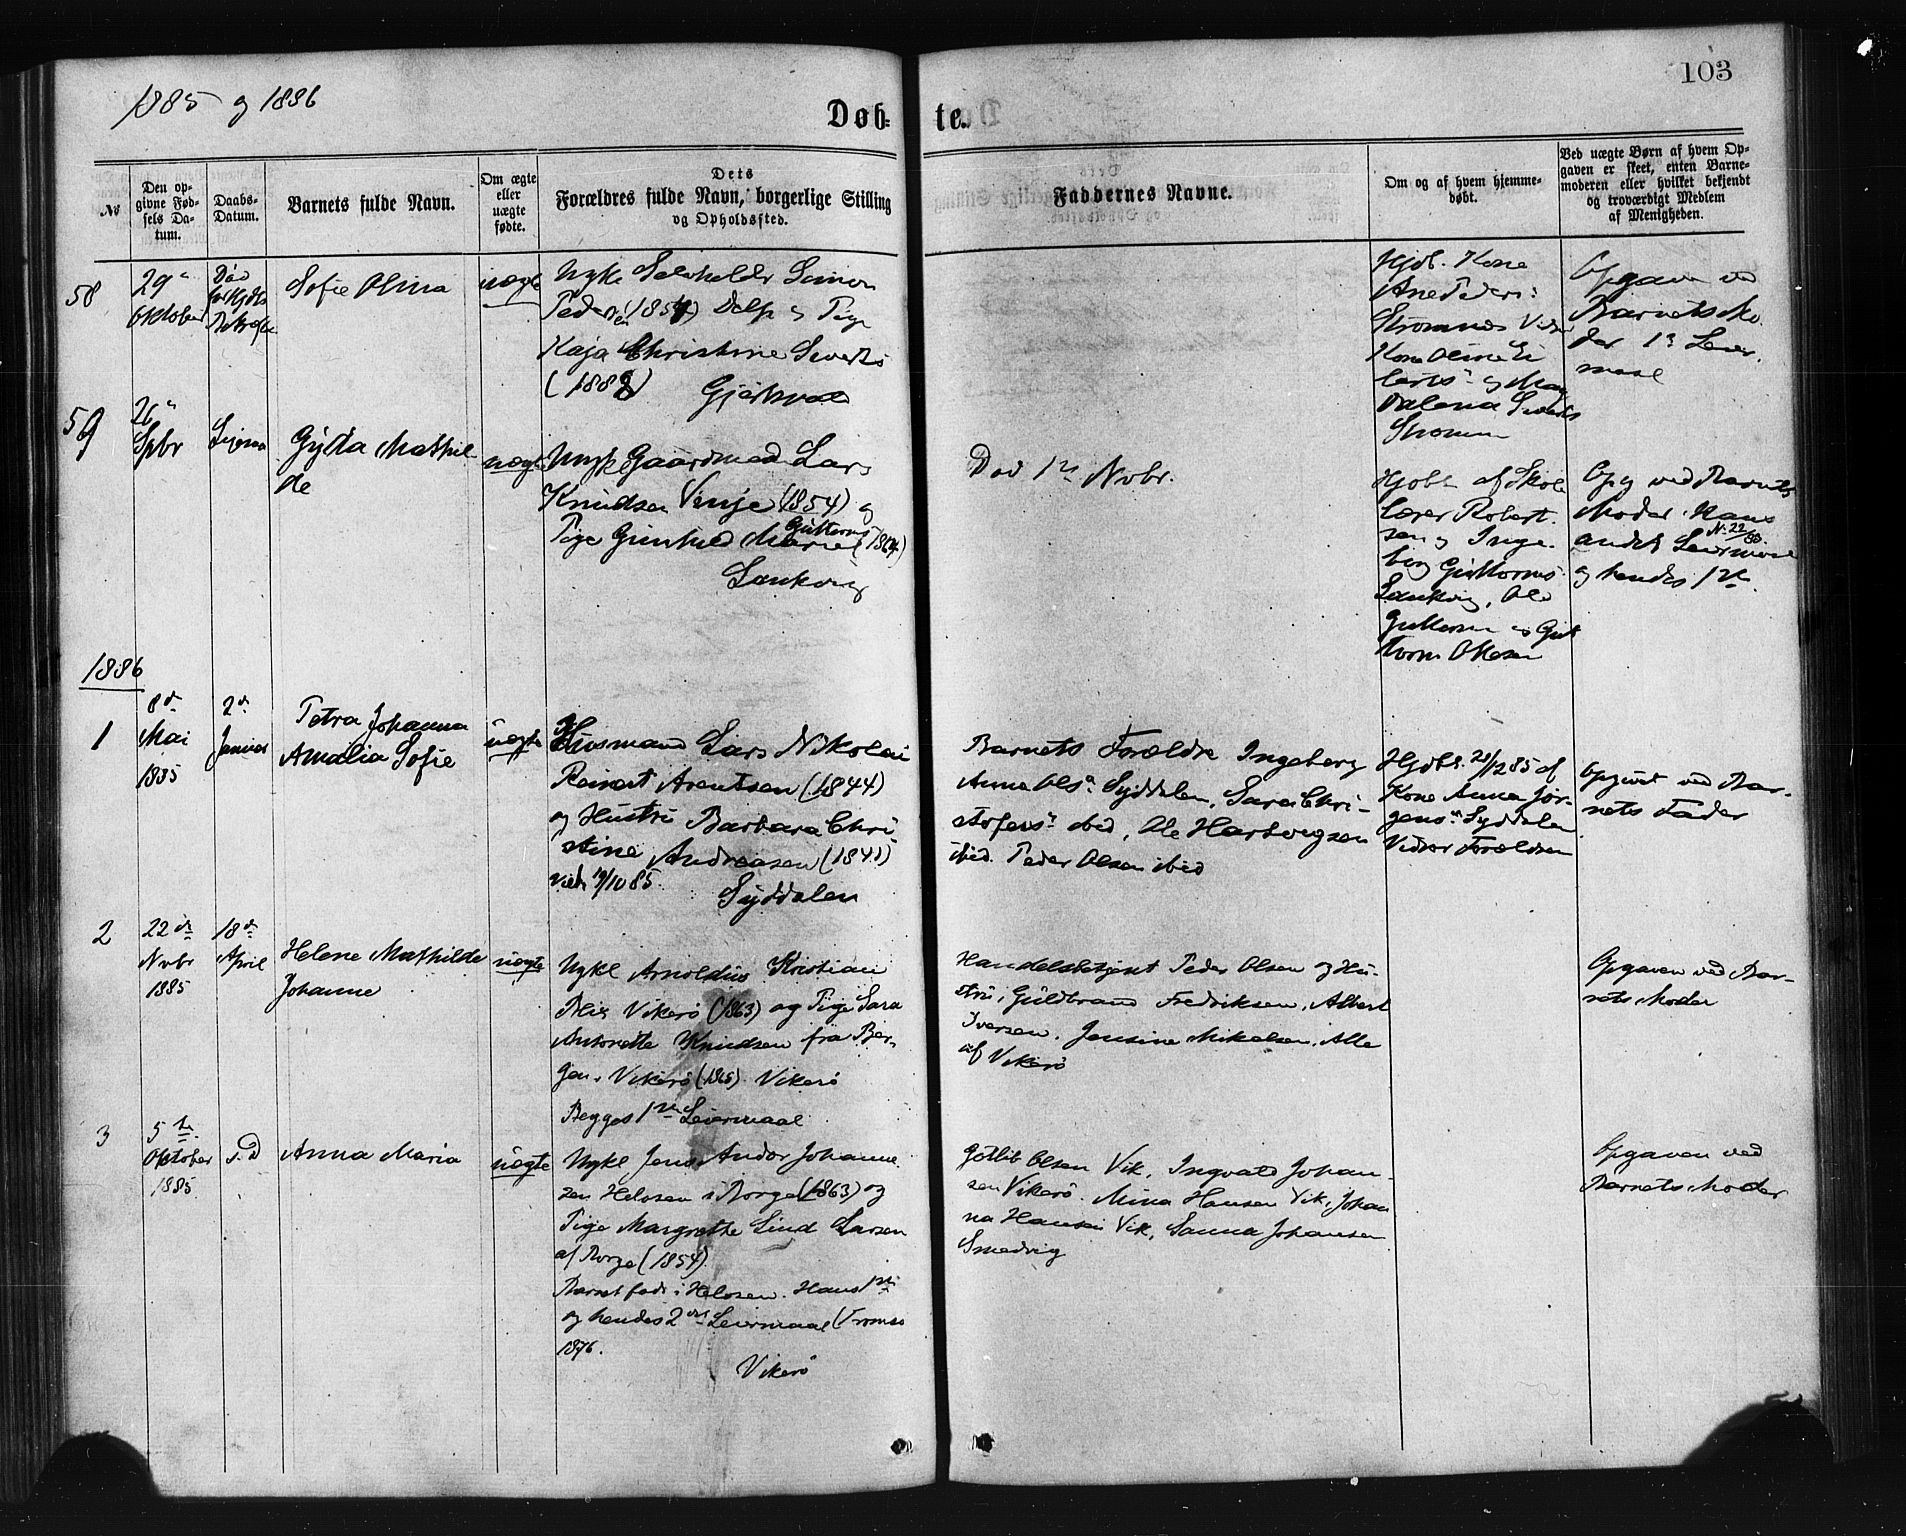 1885 og 1886
103
Døb-
te.
No
Den op-
givne Fød-
sels Da-
tum.
Daabs-
Datum.
Barnets fulde Navn.
Om ægte
eller
uægte
fødte.
Dets
Forældres fulde Navn, borgerlige Stilling
og Opholdssted.
Faddernes Navne.
Om og af hvem hjemme-
døbt.
Ved uægte Børn af hvem Op-
gaven er skeet, enten Barne-
moderen eller hvilket bekjendt
og troværdigt Medlem
af Menigheden.
58
29
Oktober
Død
Sofie Olina
uægte
Ungk Selveholder Simon
Pedersen (1854) Delp og Pige
Kaja Christine Siverts
(1882)
Hjdb. Kone
Ane Peders:
Strømnes
Kone Oline
og Mag
dalena
Opgaven ved
Barnets Mo
der 1s Leier
maal
59
26
Spbr
Gyda Mathil
de
uægte
Ungk Gaardmand Lars
Knudsen Venje (1854) og
Pige Gunhild Marie Guttorms (1864)
Sandvig
Død 1ste Novbr.
Hjdbt af Skole
lærer Robert-
sen og Inge-
borg Guttorms
Sandvig, Ole
Guttorm og Gut
torm Olsen
Opg ved Barnets
Moder. Hans
andet Leiermaal N. 22/83.
og hendes 1ste.
1886
1
8de
Mai
1885
2de
Januar
Petra Johanna
Amalia Sofie
uægte
Husmand Lars Nikolai
Reinert Arentsen (1844)
og Hustru Barbara Chri
stine Andreasen (1841)
viet 19/10 85.
Syddalen
Barnets Forældre Ingeborg
Anna Ols. Syddalen, Sara Chri-
stofers. ibid, Ole Hartvigsen
ibid. Peder Olsen ibid
Hjdbt. 21/12 85 af
Kone Anna Jør-
gens. Syddalen
Vidner Forældren
Opgivet ved Bar-
nets Fader
2
22de
Nvbr
1885
18de
April
Helene Mathilde
Johanne
uægte
Ungkl Arnoldus Kristian
Vikerø (1863) og Pige Sara
Antonette Knudsen fra Ber-
gen, Vikerø (1865). Vikerø
Begges 1ste Leiermaal
Handelsbetjent Peder Olsen og Hu-
stru, Guldbrand Fredriksen, Albert
Iversen. Jensine Mikelsen. Alle
af Vikerø
Opgaven ved Bar-
nets Moder
3
5te
Oktober
1885.
s.D
Anna Maria
uægte
Ungkl Jens Andor Johanne-
sen Helosen i Borge (1863) og
Pige Margrethe Lind Larsen
af Borge (1854).
Barnet født i Helosen. Hans 1ste
og hendes 2det Leiermaal (Tromsø
1876.
Vikerø
Gotlib Olsen Vik, Ingvald Johan-
sen Vikerø. Mina Hansen Vik, Johan
na Hansen Vik, Sanna Johansen
Smedvig
Opgaven ved
Barnets Moder